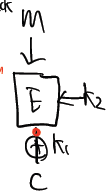 ck
m
E
k2
k1
C